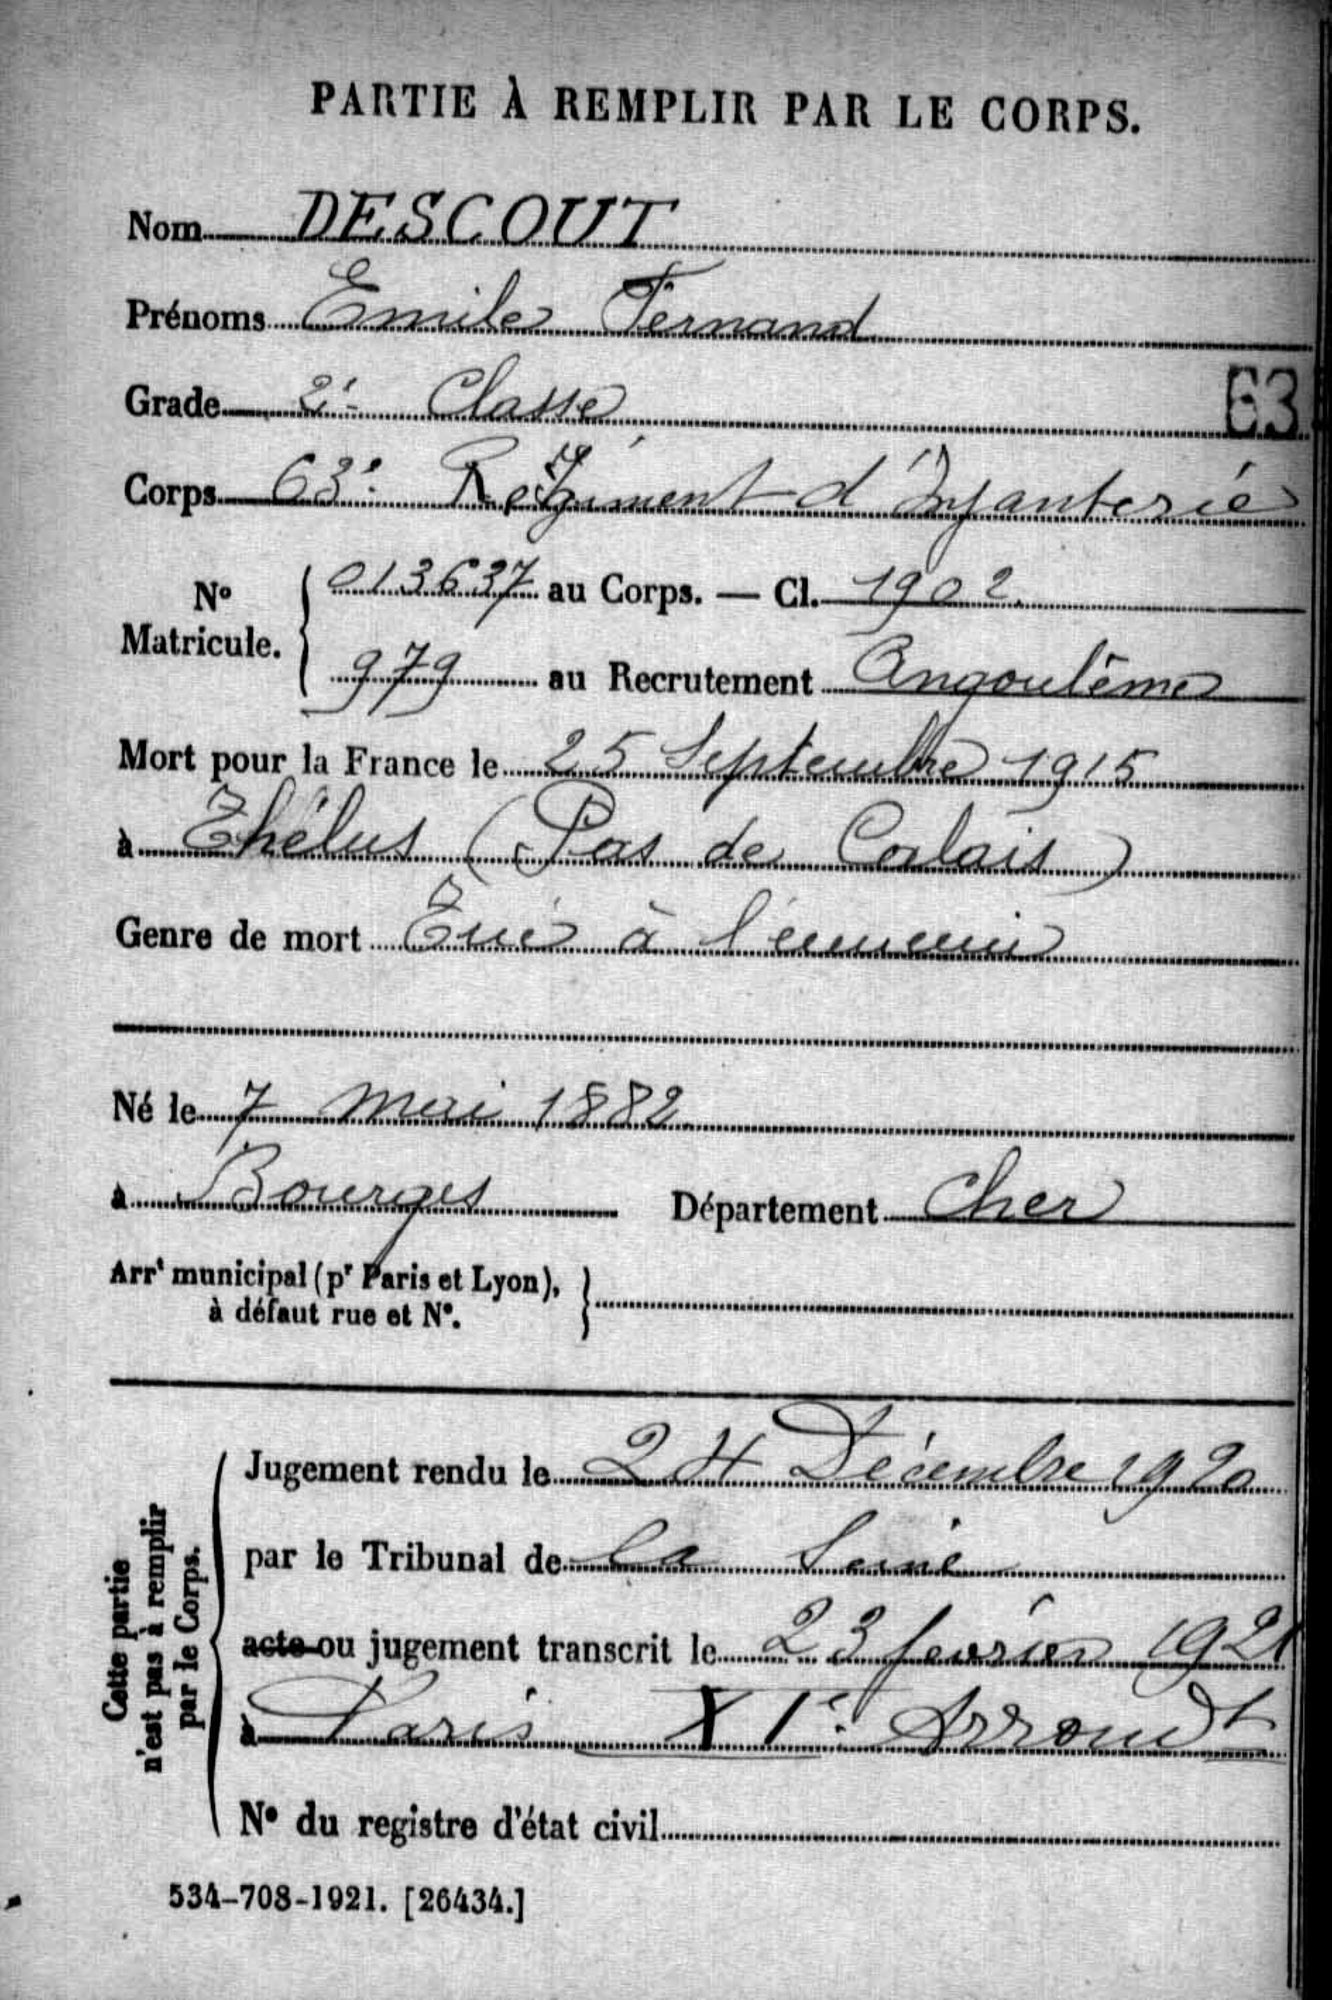 PARTIE À REMPLIR PAR LE CORPS.
Nom DESCOUT
Prénoms Emile Fernand
Grade 2e Classe
63
Corps 63e Régiment d'Infanterie
No Matricule. { 013637 au Corps. — Cl. 1902.
979 au Recrutement Angoulême
Mort pour la France le 25 Septembre 1915
à Thélus (Pas de Calais)
Genre de mort Tué à l'ennemi
Né le 7 mai 1882
à Bourges Département Cher
Arrt municipal (pr Paris et Lyon), à défaut rue et No. }
Cette partie n'est pas à remplir par le Corps.
Jugement rendu le 24 Décembre 1920
par le Tribunal de la Seine
acte ou jugement transcrit le 23 février 1921
à Paris XIe Arrondt
No du registre d'état civil
534-708-1921. [26434.]